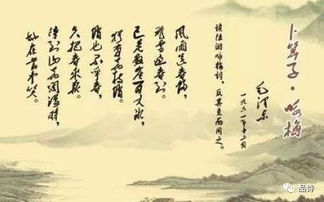 卜算子·咏梅
毛泽东
一九六一年十二月
读陆游咏梅词，反其意而用之。
风雨送春归，
飞雪迎春到。
已是悬崖百丈冰，
犹有花枝俏。
俏也不争春，
只把春来报。
待到山花烂漫时，
她在丛中笑。
品诗